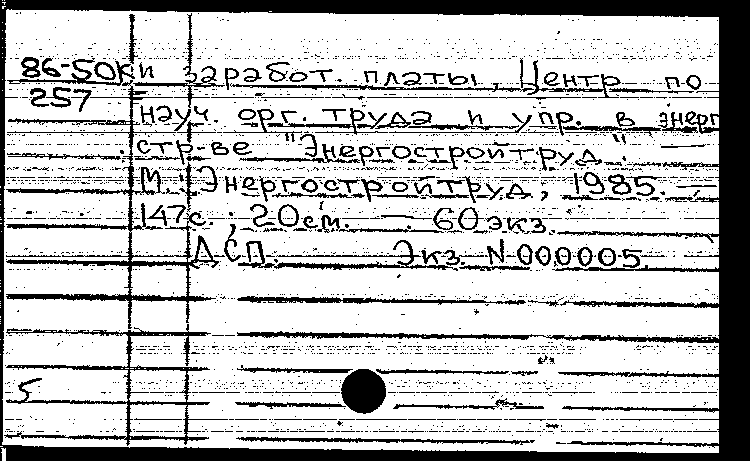 86-50к и заработ. платы, Центр по
257 науч. орг. труда и упр. в энерг
стр-ве "Энергостройтруд". —
М.: Энергостройтруд, 1985. —
147с.; 20см. — 60экз.
ДСП. Экз. N 000005.
5